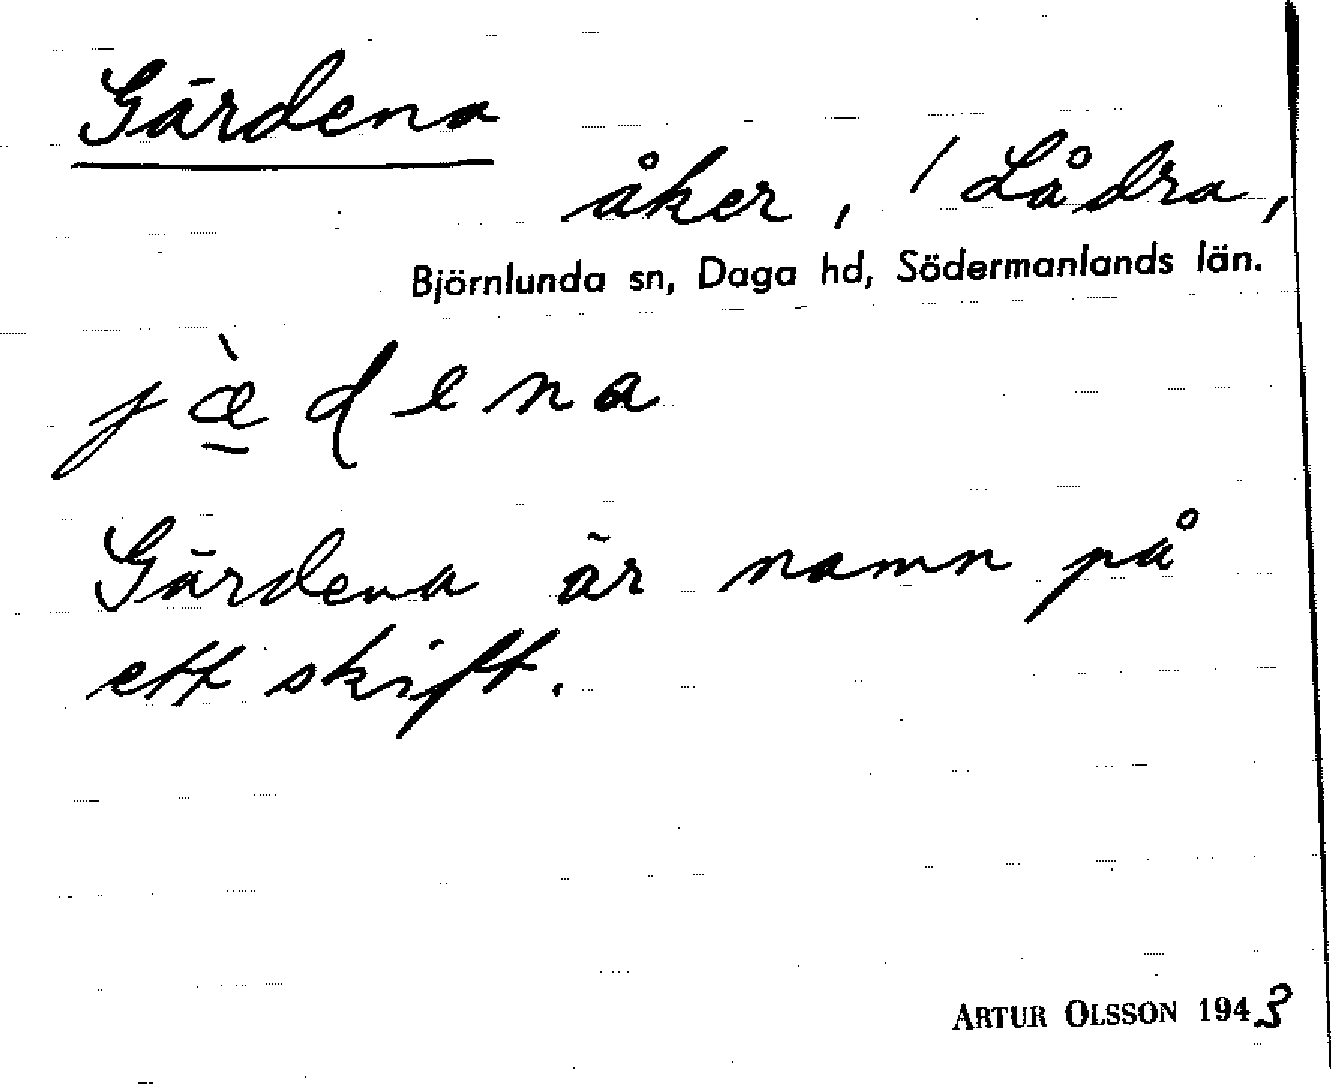 Gärdena
åker, / Lådra,
Björnlunda sn, Daga hd, Södermanlands län.
jæ̠̀dena
Gärdena är namn på
ett skift.
ARTUR OLSSON 1943